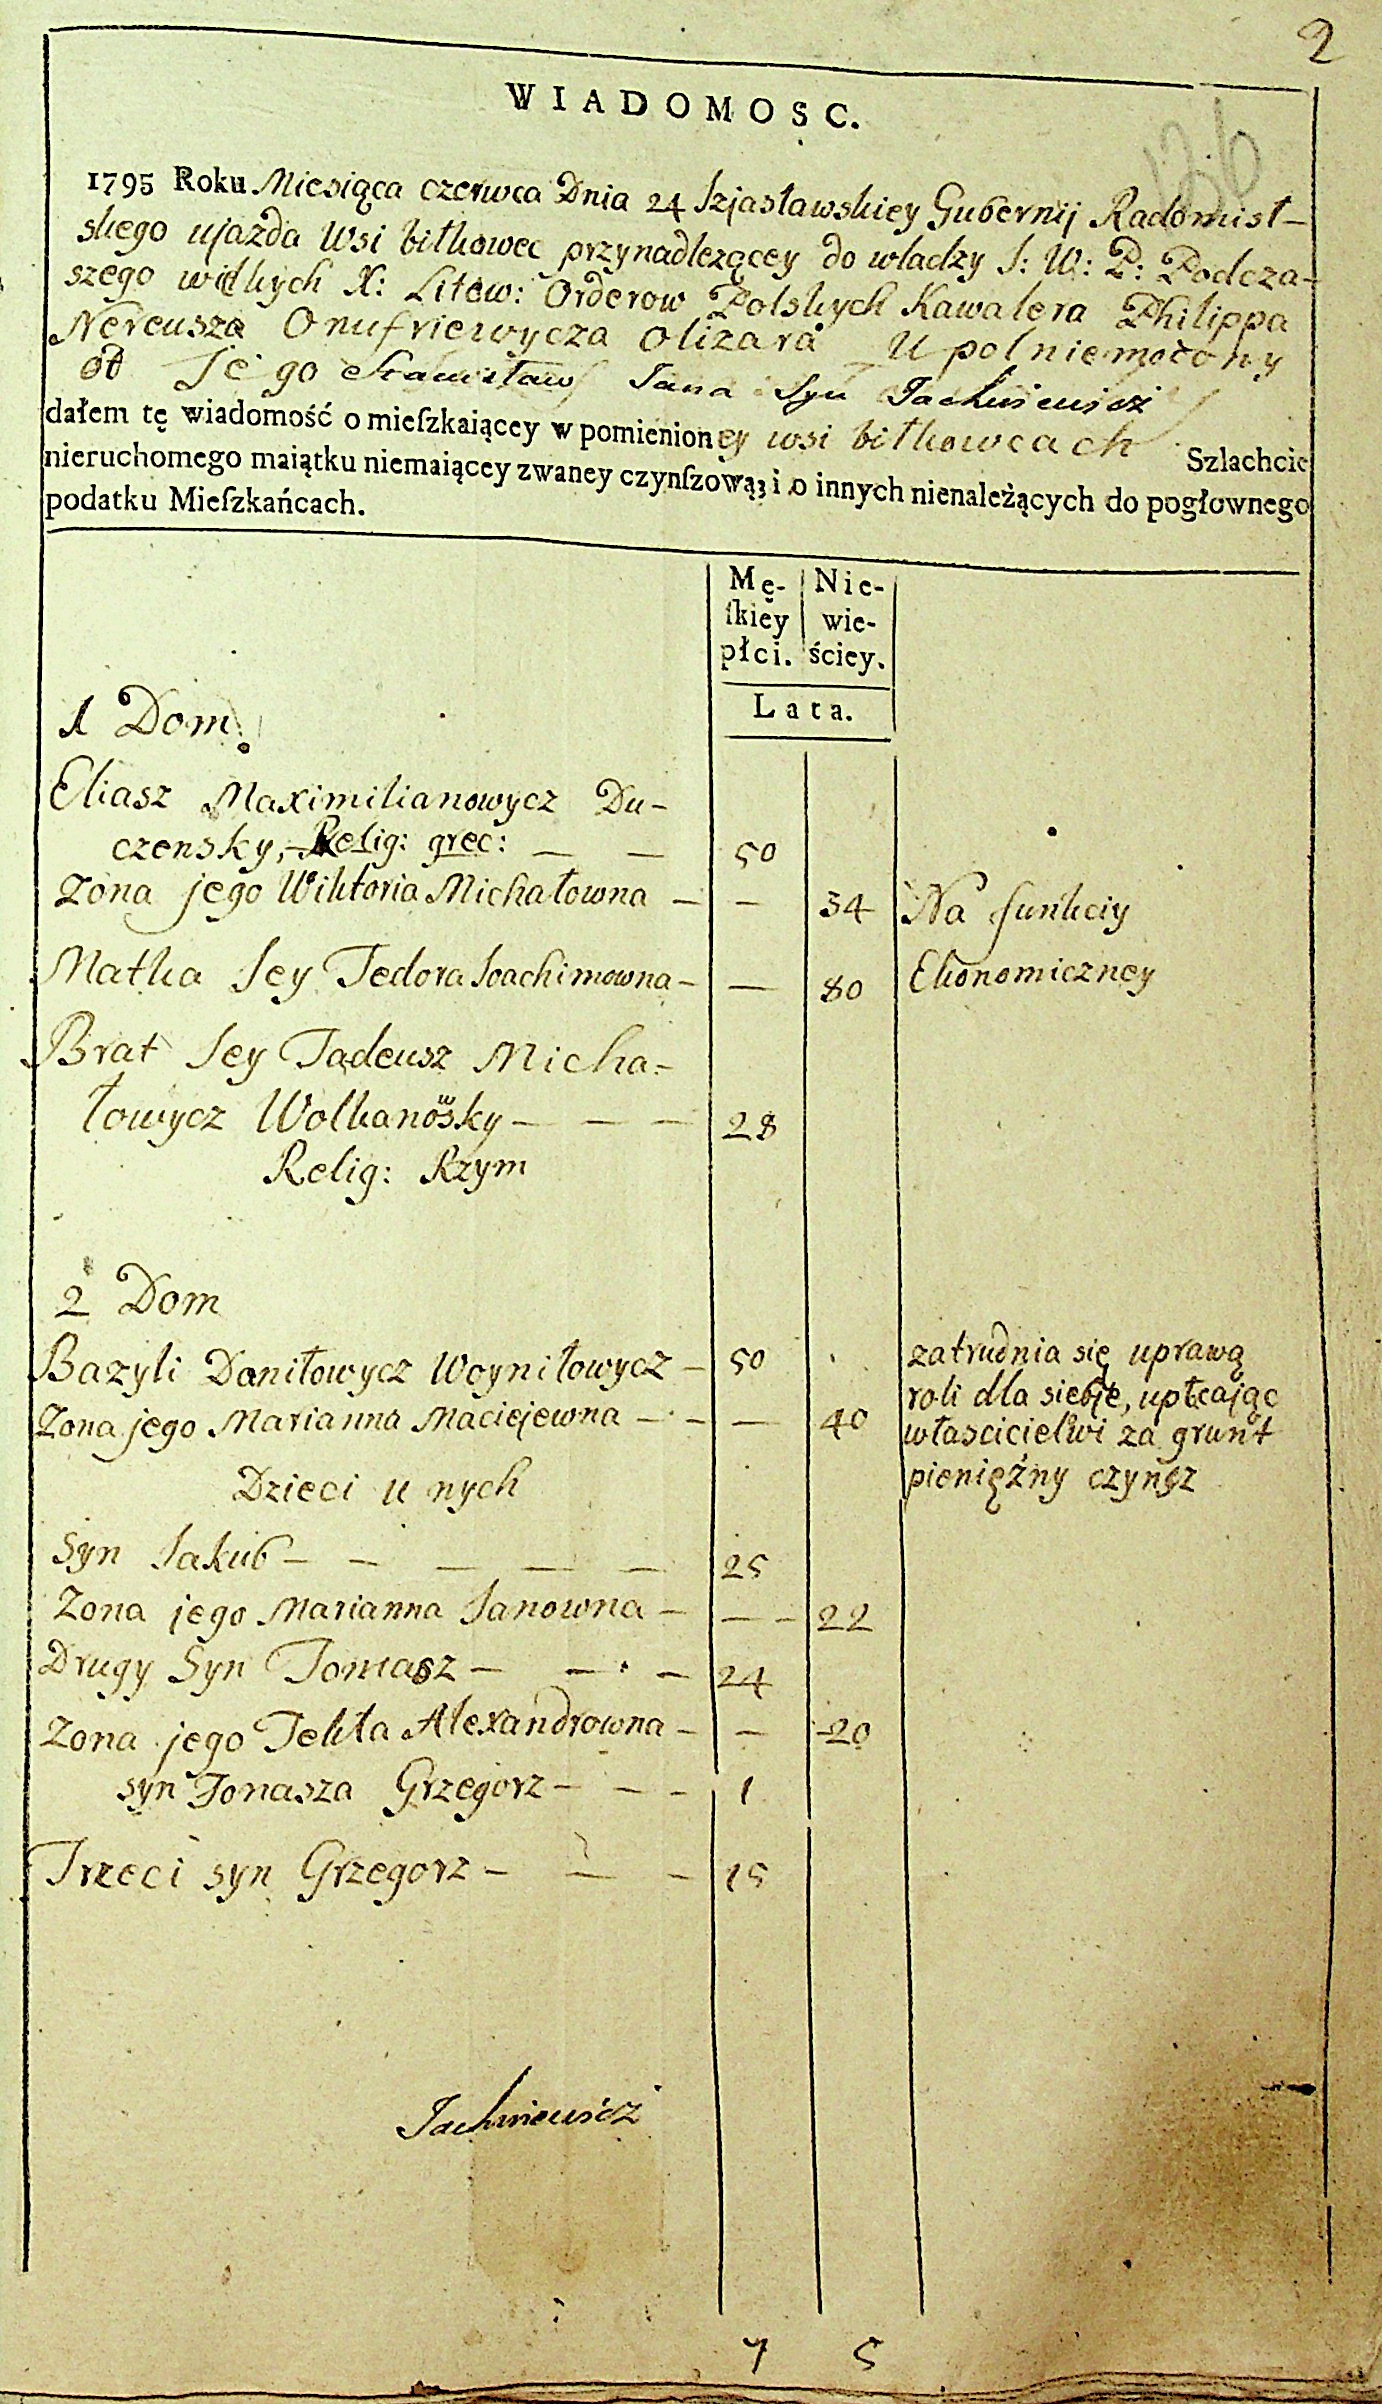 2
136
WIADOMOSC.
1795 Roku Miesiąca czerwca Dnia 24 Izjasławskiey Gubernij Radomisl-
skego ujazda Wsi bitkowec przynadlezącey do władzy J: W: P: Podcza-
szego wielkych X: Litew: Orderow Polskych Kawalera Philippa
Nereusza Onufriewycza Olizara Upolniemocony
od Jego Stanisław Jana Syn Jachniewicz
dałem tę wiadomość o mieſzkaiącey w pomienioney wsi bitkowcach Szlachcic
nieruchomego maiątku niemaiącey zwaney czynſzową; i o innych nienależących do pogłownego
podatku Mieſzkańcach.
Mę- Nie-
ſkiey wie-
płci. ściey.
Lata.
1 Dom.
Eliasz Maximilianowycz Du-
czensky, Relig: grec: — — 50
Zona jego Wiktoria Michałowna — — 34 Na funkciy
Matka Jey Tedora Joachimowna — — 80 Ekonomiczney
Brat Jey Tadeusz Micha-
łowycz Wolkanowsky — — — 28
Relig: Rzym
2 Dom
Bazyli Daniłowycz Woyniłowycz — 50 zatrudnia się uprawą
roli dla siebie, upłcając
Zona jego Marianna Maciejewna — — — 40 własciciełwi za grunt
Dzieci u nych pieniężny czynsz
Syn Jakub — — — — — 25
Zona jego Marianna Janowna — — — 22
Drugy Syn Tomasz — — — 24
Zona jego Tekła Alexandrowna — — 20
syn Tomasza Grzegorz — — — 1
Trzeci syn Grzegorz — — — 15
Jachniewicz
7 5